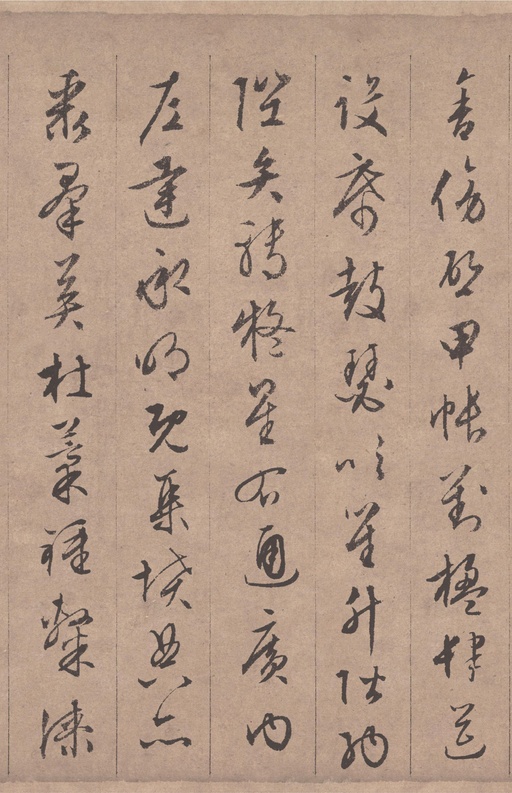 舍傍啓甲帳對楹肆筵
設席鼓瑟吹笙升階納
陛弁轉疑星右通廣內
左達承明既集墳典亦
聚群英杜藁鍾隸漆